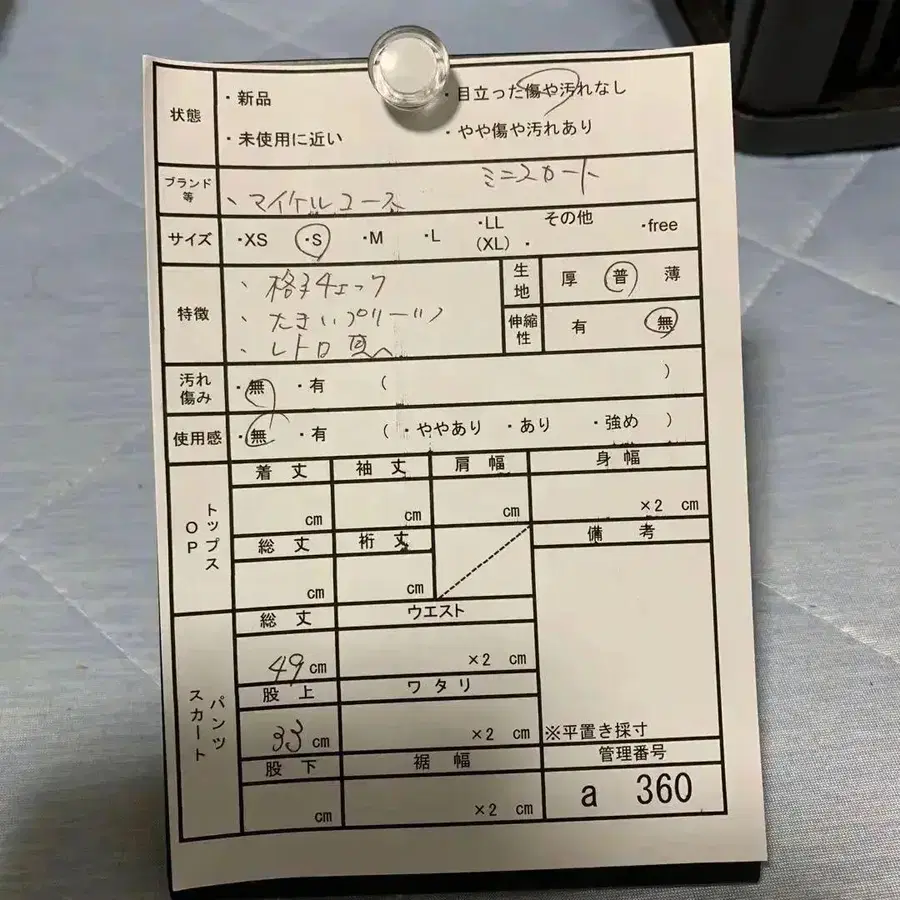 状態
・新品
・目立った傷や汚れなし
・未使用に近い
・やや傷や汚れあり
ブランド等
ミニスカート
、マイケルコース
サイズ
・XS ・S ・M ・L ・LL（XL）・ その他 ・free
特徴
、格子チェック
、たきいプリーツ
、レトロ
生地
厚 普 薄
伸縮性
有 無
汚れ傷み
・無 ・有 （ ）
使用感
・無 ・有 （ ・ややあり ・あり ・強め ）
トップスOP
着丈 袖丈 肩幅 身幅
cm cm cm ×2 cm
総丈 裄丈 備考
cm cm
パンツスカート
総丈 ウエスト
49cm ×2 cm
股上 ワタリ
33cm ×2 cm
※平置き採寸
股下 裾幅 管理番号
cm ×2 cm
a 360